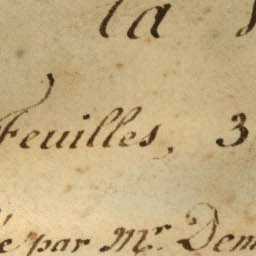 la
Feuilles, 3
par Mr. Dem